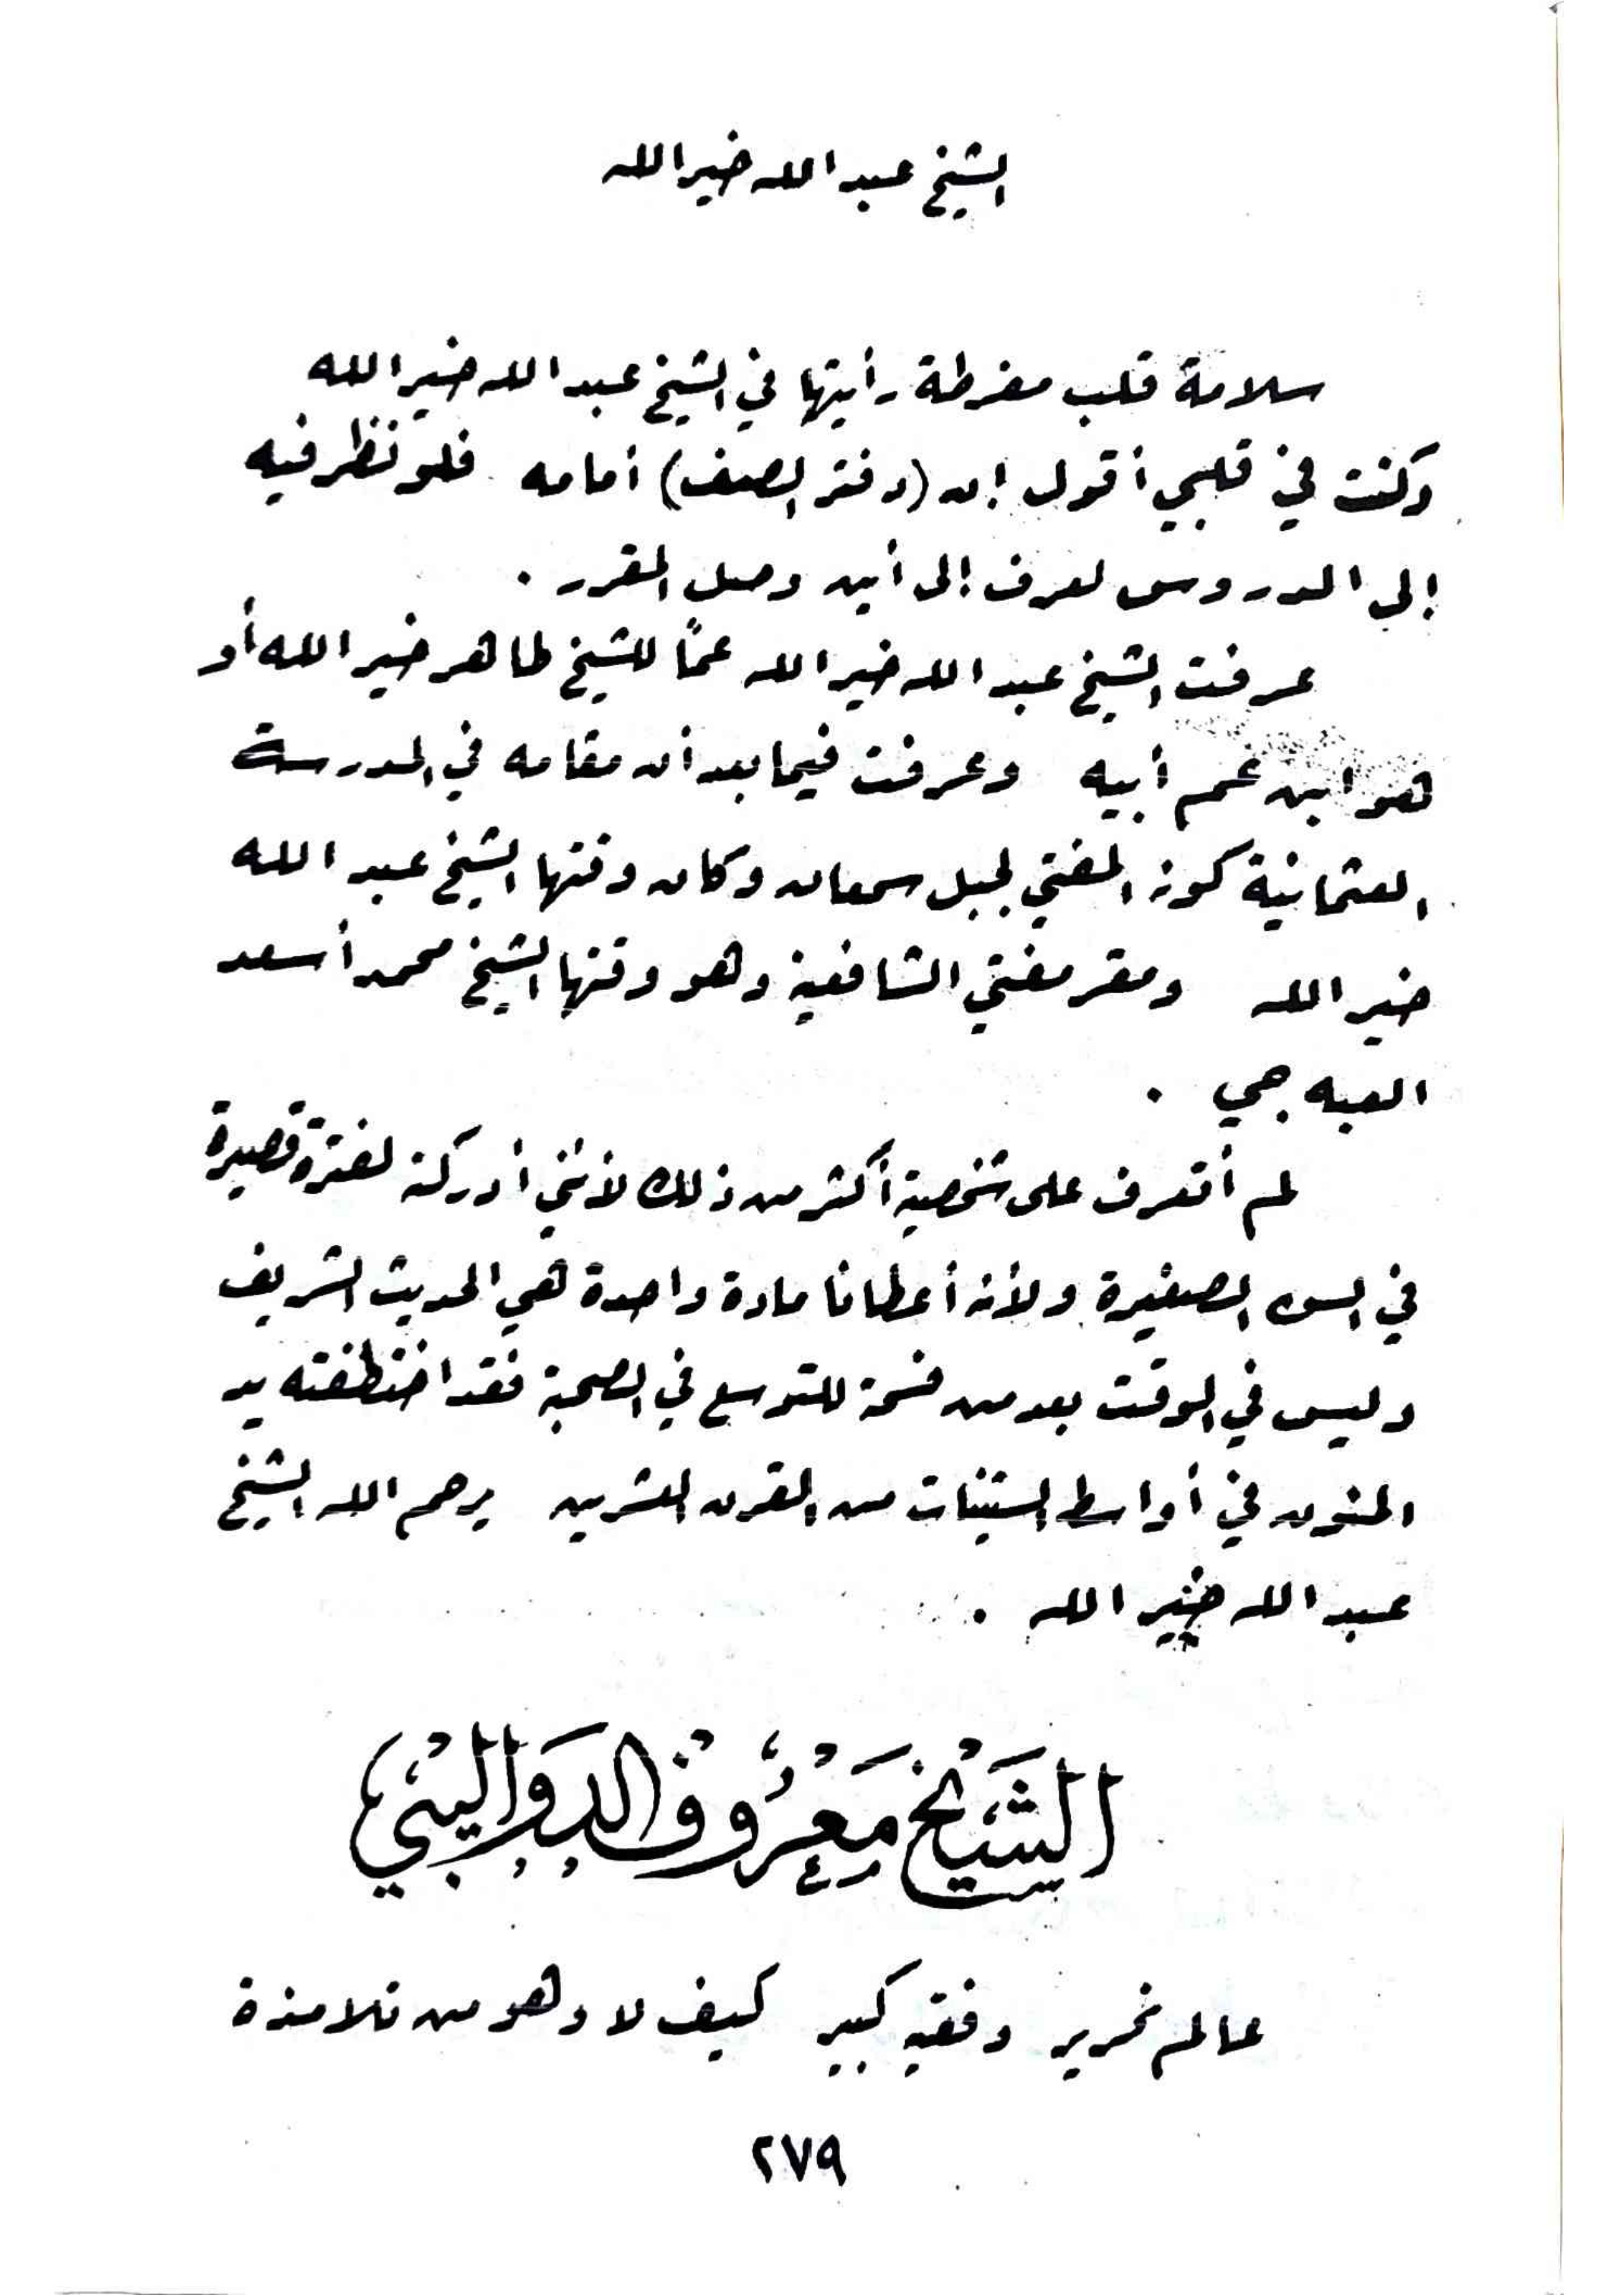 الشيخ عبد الله خير الله
سلامة قلب مفرطة رأيتها في الشيخ عبد الله خير الله
وكنت في قلبي أقول إن (دفتر الصف) أمامه فلو نظر فيه
إلى الدروس لعرف إلى أين وصل المقرر .
عرفت الشيخ عبد الله خير الله عمًا للشيخ طاهر خير الله أو
هو ابن عم أبيه وعرفت فيما بعد أن مقامه في المدرسة
العثمانية كونه المفتي لجبل سمعان وكان وقتها الشيخ عبد الله
خير الله ومقر مفتي الشافعية وهو وقتها الشيخ محمد أسعد
العبه جي .
لم أتعرف على شخصية أكثر من ذلك لأنني أدركته لفترة قصيرة
في السن الصغيرة ولأنه أعطانا مادة واحدة هي الحديث الشريف
وليس في الوقت بعد من فسحة للتوسع في الصحبة فقد اختطفته يد
المنون في أواسط الستينات من القرن العشرين يرحم الله الشيخ
عبد الله خير الله .
الشَّيْخ مَعْرُوفْ الدَوَاليْبي
عالم نحرير وفقيه كبير كيف لا وهو من تلامذة
٢٧٩